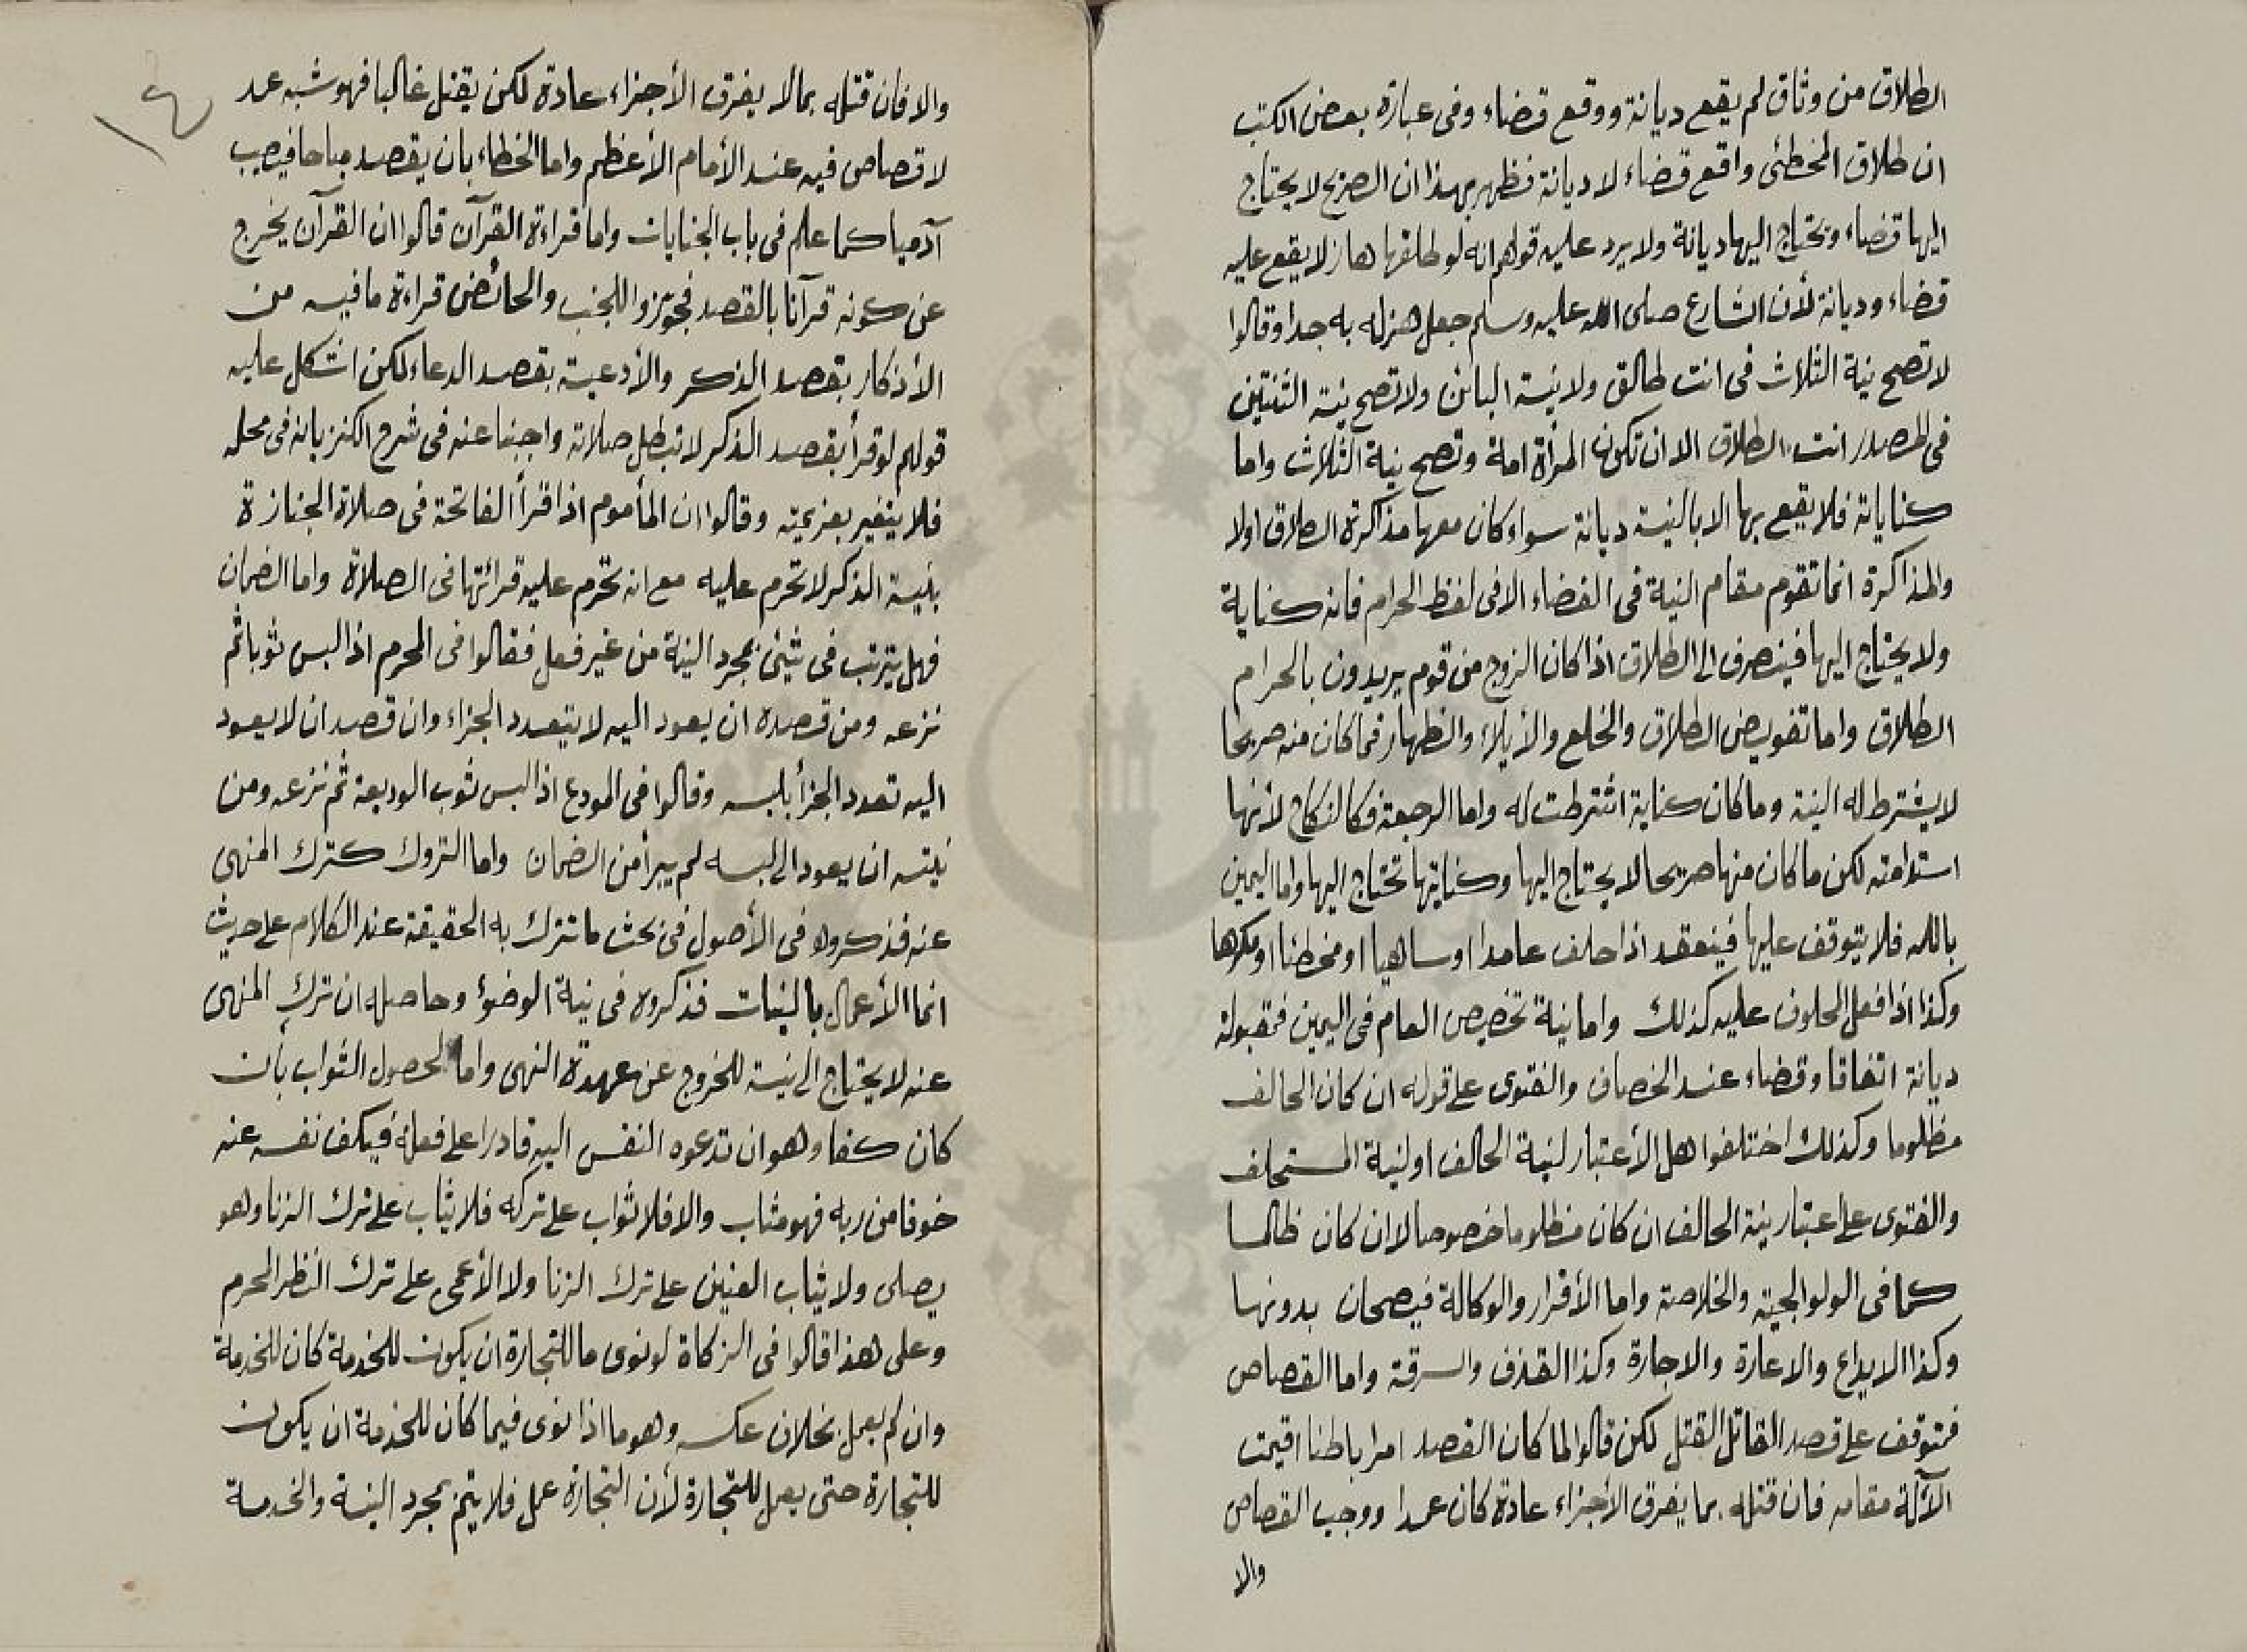 الطلاق من وثاق لم يقع ديانة ووقع قضاء وفى عبارة بعض الكتب
ان طلاق المخطئى واقع قضاء لا ديانة فظهر بهذا ان الصريح لا يحتاج
اليها قضاء ويحتاج اليها ديانة ولا يرد عليه قولهم انه لو طلقها هازلا يقع عليه
قضاء وديانة لأن الشارع صلى الله عليه وسلم جعل هزله به جدا وقالوا
لا تصح نية الثلاث فى انت طالق ولا نية البائن ولا تصح نية الثنتين
فى المصدر انت الطلاق الا ان تكون المرأة امة وتصح نية الثلاث واما
كناياته فلا يقع بها الا بالنية ديانة سواء كان معها مذاكرة الطلاق اولا
والمذاكرة انما تقوم مقام النية فى القضاء الا فى لفظ الحرام فانه كناية
ولا يحتاج اليها فينصرف الى الطلاق اذا كان الزوج من قوم يريدون بالحرام
الطلاق واما تفويض الطلاق والخلع والأيلاء والظهار فما كان منه صريحا
لا يشترط له النية وما كان كناية اشترطت له واما الرجعة فكالنكاح لأنها
استدامته لكن ما كان منها صريحا لا يحتاج اليها وكنايتها تحتاج اليها واما اليمين
بالله فلا يتوقف عليها فينعقد اذا حلف عامدا او ساهيا او مخطئا او مكرها
وكذا اذا فعل المحلوف عليه كذلك واما نية تخصيص العام فى اليمين فمقبولة
ديانة اتفاقا وقضاء عند الخصاف والفتوى على قوله ان كان الحالف
مظلوما وكذلك اختلفوا هل الأعتبار لنية الحالف او لنية المستحلف
والفتوى على اعتبار نية الحالف ان كان مظلوما خصوصا لا ان كان ظالما
كما فى الولوالجية والخلاصة واما الأقرار والوكالة فيصحان بدونها
وكذا الايداع والاعارة والاجارة وكذا القذف والسرقة واما القصاص
فمتوقف على قصد القاتل القتل لكن قالوا لما كان القصد امرا باطنا اقيمت
الآلة مقامه فان قتله بما يفرق الأجزاء عادة كان عمدا ووجب القصاص
والا
١٤
والا فان قتله بما لا يفرق الأجزاء عادة لكن يقتل غالبا فهو شبه عمد
لا قصاص فيه عند الأمام الأعظم واما الخطاء بان يقصد مباحا فيصيب
آدميا كما علم فى باب الجنايات واما قراءة القرآن قالوا ان القرآن يخرج
عن كونه قرآنا بالقصد فجوزوا للجنب والحائض قراءة ما فيه من
الأذكار بقصد الذكر والأدعية بقصد الدعاء لكن اشكل عليه
قولهم لو قرأ بقصد الذكر لا تبطل صلاته واجبنا عنه فى شرح الكنز بانه فى محله
فلا يتغير بعزيمته وقالوا ان المأموم اذا قرأ الفاتحة فى صلاة الجنازة
بنية الذكر لا تحرم عليه مع انه تحرم عليه قرائتها فى الصلاة واما الضمان
فهل يترتب فى شئ بمجرد النية من غير فعل فقالوا فى المحرم اذا لبس ثوبا ثم
نزعه ومن قصده ان يعود اليه لا يتعدد الجزاء وان قصد ان لا يعود
اليه تعدد الجزأ بلبسه وقالوا فى المودع اذا لبس ثوب الوديعة ثم نزعه ومن
نيته ان يعود الى لبسه لم يبرأ من الضمان واما التروك كترك المنهى
عنه فذكروه فى الأصول فى بحث ما تترك به الحقيقة عند الكلام على حديث
انما الأعمال بالنيات فذكروه فى نية الوضوٴ وحاصله ان ترك المنهى
عنه لا يحتاج الى نية للخروج عن عهدة النهى واما لحصول الثواب بان
كان كفا وهو ان تدعوه النفس اليه قادرا على فعله فيكف نفسه عنه
خوفا من ربه فهو مثاب والا فلا ثواب على تركه فلا يثاب على ترك الزنا وهو
يصلى ولا يثاب العنين على ترك الزنا ولا الأعمى على ترك النظر المحرم
وعلى هذا قالوا فى الزكاة لو نوى ما للتجارة ان يكون للخدمة كان للخدمة
وان لم يعمل بخلاف عكسه وهو ما اذا نوى فيما كان للخدمة ان يكون
للتجارة حتى يعمل للتجارة لأن التجارة عمل فلا يتم بمجرد النية والخدمة